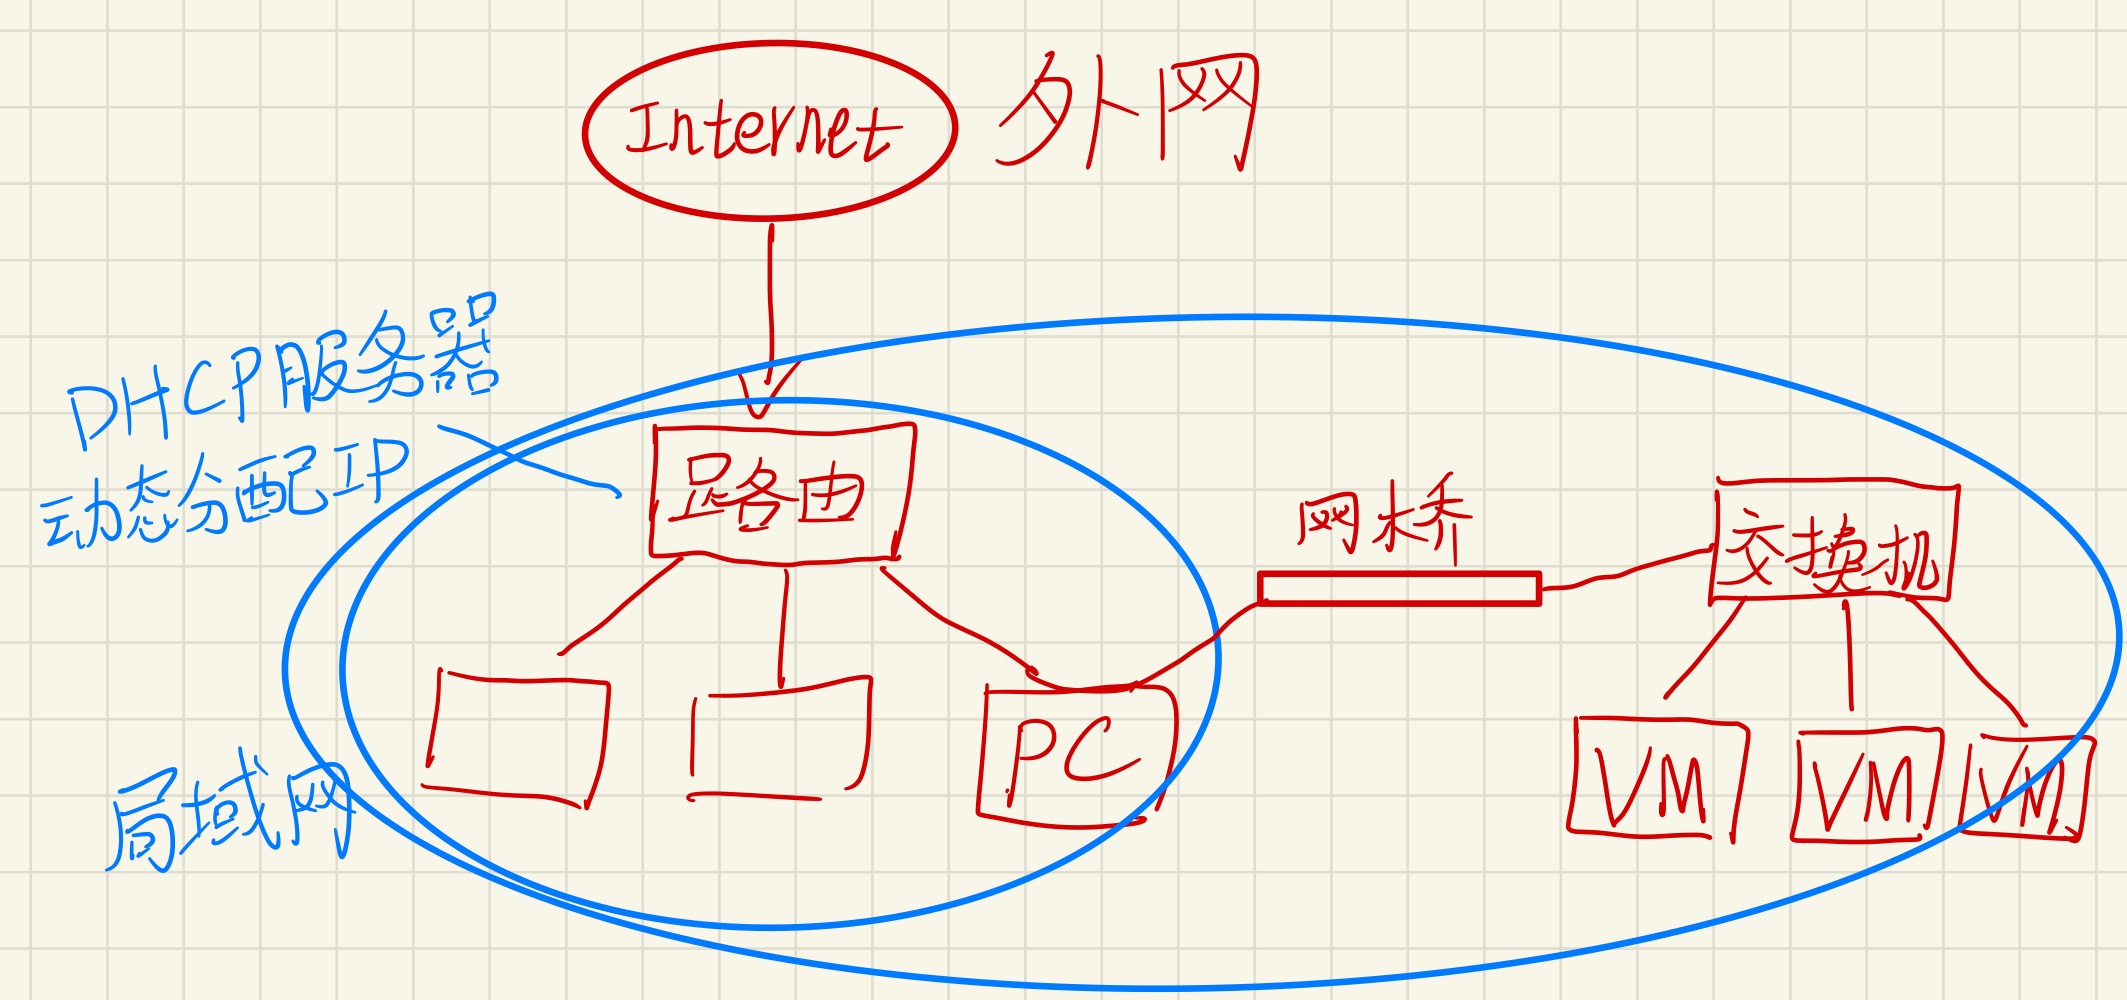 Internet
外网
DHCP服务器
动态分配IP
路由
网桥
交换机
PC
VM
VM
VM
局域网